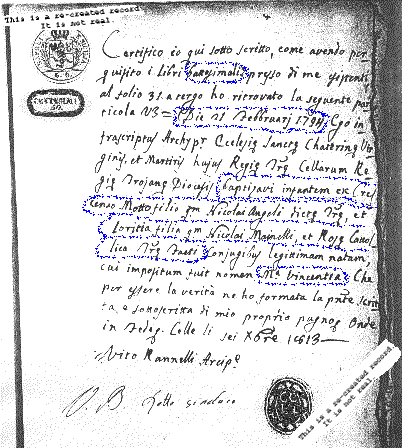 This is a re-created record
It is not real.
Certifico io qui sotto scritto, come avendo per
quisito i libri baresimali presso di me esistenti
al folio 31. a tergo ho ritrovato la seguente par
ticola V3= Die 21 Februarij 1794 Ego in
frascriptus Archypr Ecclesiȩ Sanctȩ Chaterinȩ Vir
ginis, et Martiris hujus Regiȩ Trȩ Cellarum Re
giȩ Trojanȩ Diocesis baptizavi infantem ex Cre
scenzo Motto filio qm Nicolai Angeli dictȩ Trȩ, et
Loritta filia qm Nicolai Mainelli, et Rosȩ Catto
lica Trȩ Conjugibus legittimam natam,
cui impositum fuit nomen Ma Vincentia Che
per essere la verità ne ho formata la pnte scrit
ta, e sottoscritta di mio proprio pugno Onde
in fede. Celle li sei Xbre 1813
Vito Rannelli Arcipe
V. B. sindaco
This is a re-created record
It is not real.